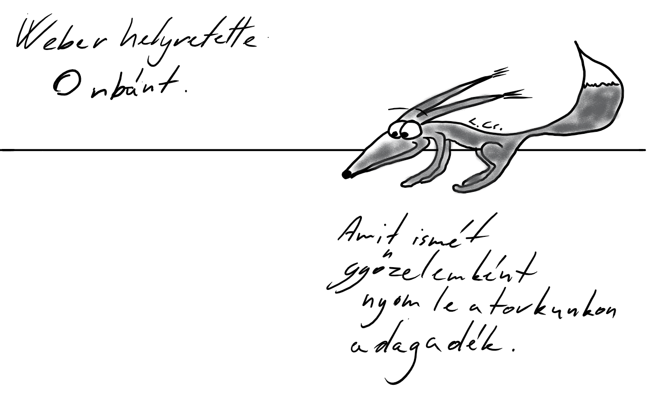 Weber helyretette
Orbánt.
Amit ismét
győzelemként
nyom le a torkunkon
a dagadék.